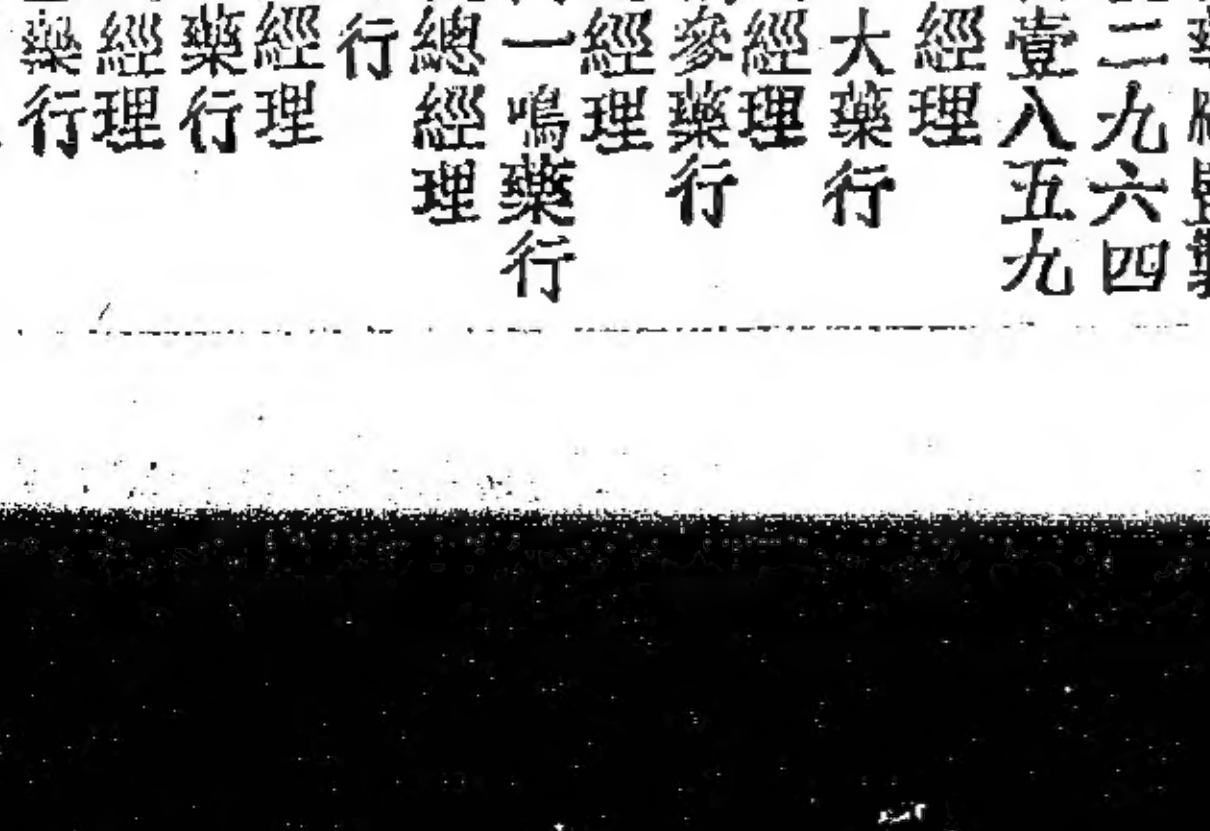 二九六四
壹八五九
經理
大藥行
經理
參藥行
經理
一鳴藥行
總經理
行
經理
藥行
經理
藥行